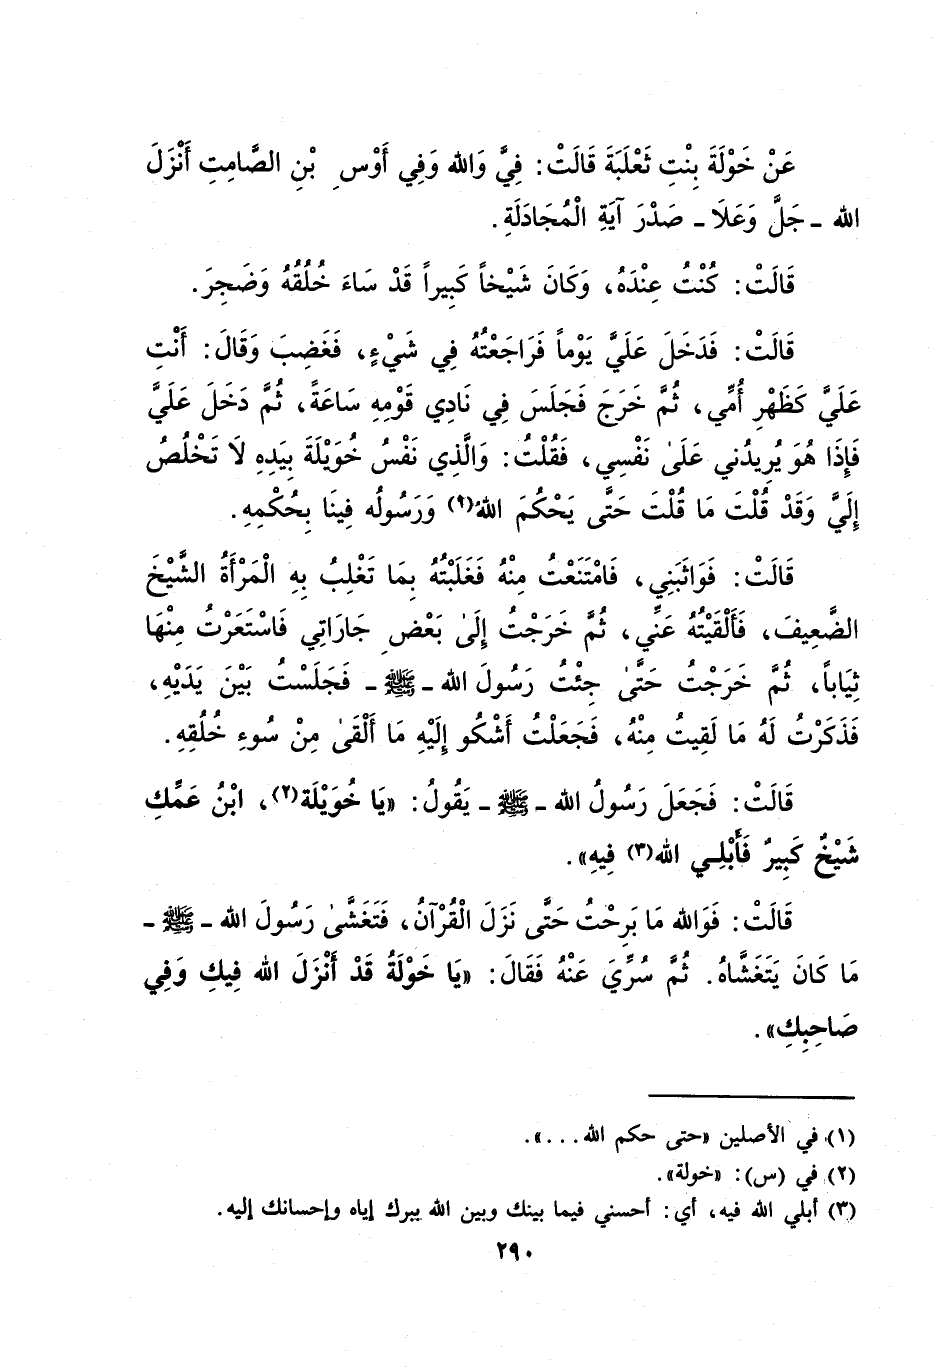 عَنْ خَوْلَةَ بِنْتِ ثَعْلَبَةَ قَالَتْ: فِيَّ وَالله وَفِي أَوْسِ بْنِ الصَّامِتِ أَنْزَلَ
الله ـ جَلَّ وَعَلَا ـ صَدْرَ آيَةِ الْمُجَادَلَةِ.
قَالَتْ: كُنْتُ عِنْدَهُ، وَكَانَ شَيْخاً كَبِيراً قَدْ سَاءَ خُلُقُهُ وَضَجِرَ.
قَالَتْ: فَدَخَلَ عَلَيَّ يَوْماً فَرَاجَعْتُهُ فِي شَيْءٍ، فَغَضِبَ وَقَالَ: أَنْتِ
عَلَيَّ كَظَهْرِ أُمِّي، ثُمَّ خَرَجَ فَجَلَسَ فِي نَادِي قَوْمِهِ سَاعَةً، ثُمَّ دَخَلَ عَلَيَّ
فَإِذَا هُوَ يُرِيدُنِي عَلَىٰ نَفْسِي، فَقُلْتُ: وَالَّذِي نَفْسُ خُوَيْلَةَ بِيَدِهِ لَا تَخْلُصُ
إِلَيَّ وَقَدْ قُلْتَ مَا قُلْتَ حَتَّى يَحْكُمَ اللهُ(١) وَرَسُولُه فِينَا بِحُكْمِهِ.
قَالَتْ: فَوَاثَبَنِي، فَامْتَنَعْتُ مِنْهُ فَغَلَبْتُهُ بِمَا تَغْلِبُ بِهِ الْمَرْأَةُ الشَّيْخَ
الضَّعِيفَ، فَأَلْقَيْتُهُ عَنِّي، ثُمَّ خَرَجْتُ إِلَىٰ بَعْضِ جَارَاتِي فَاسْتَعَرْتُ مِنْهَا
ثِيَاباً، ثُمَّ خَرَجْتُ حَتَّىٰ جِئْتُ رَسُولَ الله ـ ﷺ ـ فَجَلَسْتُ بَيْنَ يَدَيْهِ،
فَذَكَرْتُ لَهُ مَا لَقِيتُ مِنْهُ، فَجَعَلْتُ أَشْكُو إِلَيْهِ مَا أَلْقَىٰ مِنْ سُوءِ خُلُقِهِ.
قَالَتْ: فَجَعَلَ رَسُولُ الله ـ ﷺ ـ يَقُولُ: «يَا خُوَيْلَة(٢)، ابْنُ عَمِّكِ
شَيْخٌ كَبِيرٌ فَأَبْلِي الله(٣) فِيهِ».
قَالَتْ: فَوَالله مَا بَرِحْتُ حَتَّى نَزَلَ الْقُرْآنُ، فَتَغَشَّىٰ رَسُولَ الله ـ ﷺ ـ
مَا كَانَ يَتَغَشَّاهُ. ثُمَّ سُرِّيَ عَنْهُ فَقَالَ: «يَا خَوْلَةُ قَدْ أَنْزَلَ الله فِيكِ وَفِي
صَاحِبِكِ».
(١) في الأصلين «حتى حكم الله...».
(٢) في (س): «خولة».
(٣) أبلي الله فيه، أي: أحسني فيما بينك وبين الله ببرك إياه وإحسانك إليه.
٢٩٠